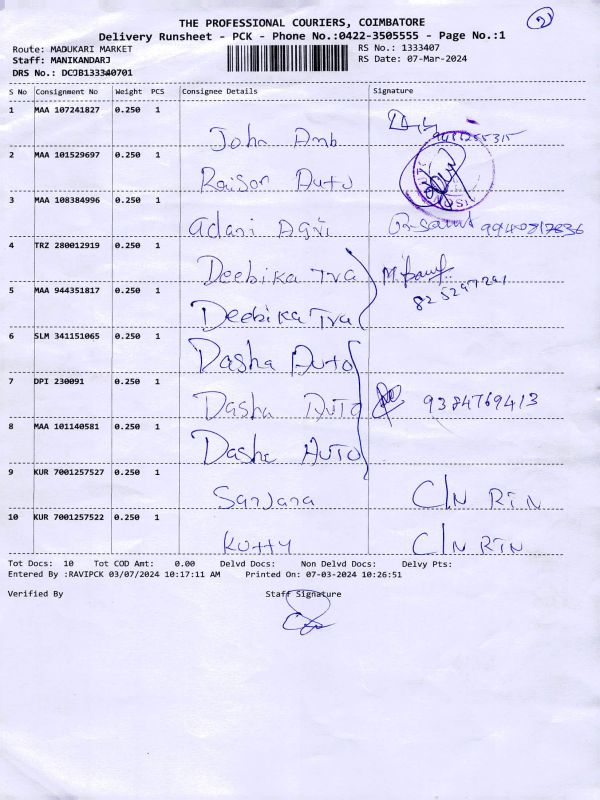 2
THE PROFESSIONAL COURIERS, COIMBATORE
Delivery Runsheet - PCK - Phone No.:0422-3505555 - Page No.:1
Route: MADUKARI MARKET RS No.: 1333407
Staff: MANIKANDARJ RS Date: 07-Mar-2024
DRS No.: DCJB133340701
S No Consignment No Weight PCS Consignee Details Signature
1 MAA 107241827 0.250 1
John Amb 9487255315
2 MAA 101529697 0.250 1
Raison Auto
3 MAA 108384996 0.250 1
Adani Agri 9940317836
4 TRZ 280012919 0.250 1
Deebika Tra
5 MAA 944351817 0.250 1 8252497291
Deebika Tra
6 SLM 341151065 0.250 1
Dasha Auto
7 DPI 230091 0.250 1
Dasha Auto 9384769413
8 MAA 101140581 0.250 1
Dasha Auto
9 KUR 7001257527 0.250 1
Sanjana C/N RTN
10 KUR 7001257522 0.250 1
Kutty C/N RTN
Tot Docs: 10 Tot COD Amt: 0.00 Delvd Docs: Non Delvd Docs: Delvy Pts:
Entered By :RAVIPCK 03/07/2024 10:17:11 AM Printed On: 07-03-2024 10:26:51
Verified By Staff Signature